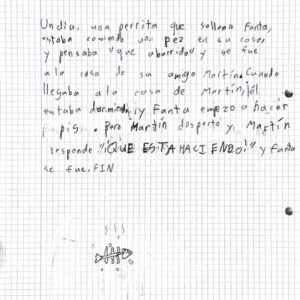 Un día, una perrita que sollama Fanta,
estaba comiendo una pez en su casa,
y pensaba "que aburrido" y se fue
a la casa de su amigo Martín. Cuando
llegaba a la casa de Martín, él
estaba durmiendo, y Fanta empezo a hacer
pis. Pero Martín despertó y, Martín
responde "¡QUE ESTA HACIENDO!" y Fanta
se fue. FIN